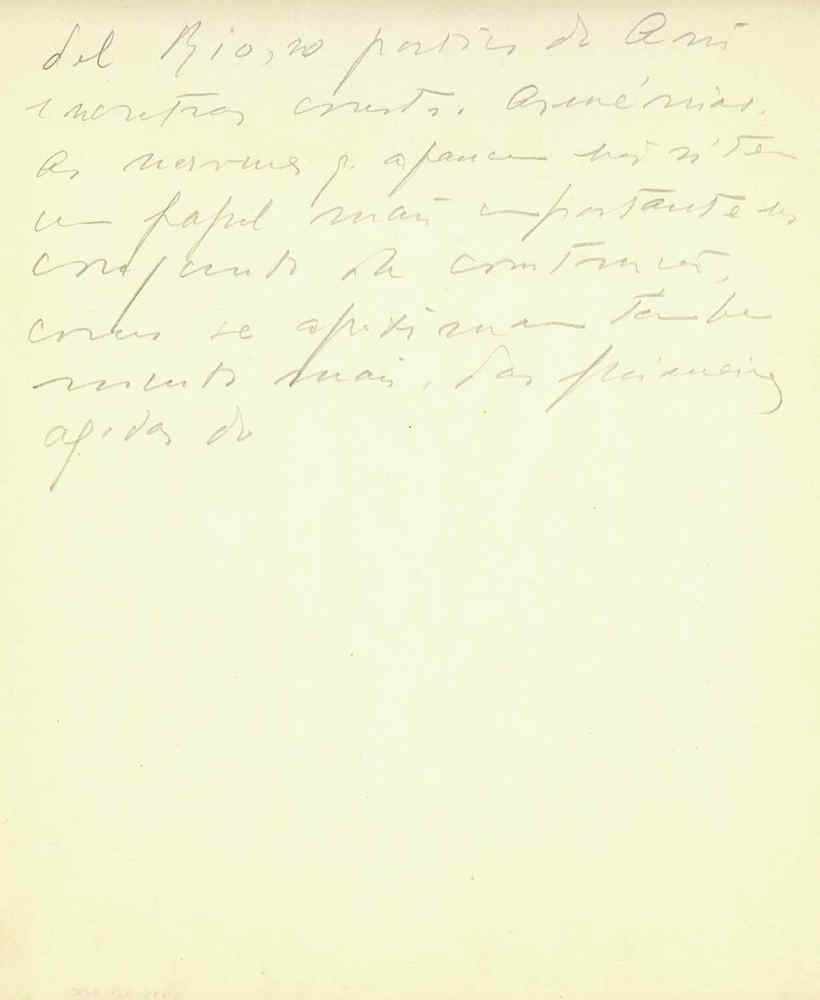 del Rio, no portico de Ani
e noutras constr. Arménias.
As nervuras q. aparecem não só tem
um papel mais importante no
conjunto da construção,
como se aproximam também
muito mais, das primeiras
ogivas do